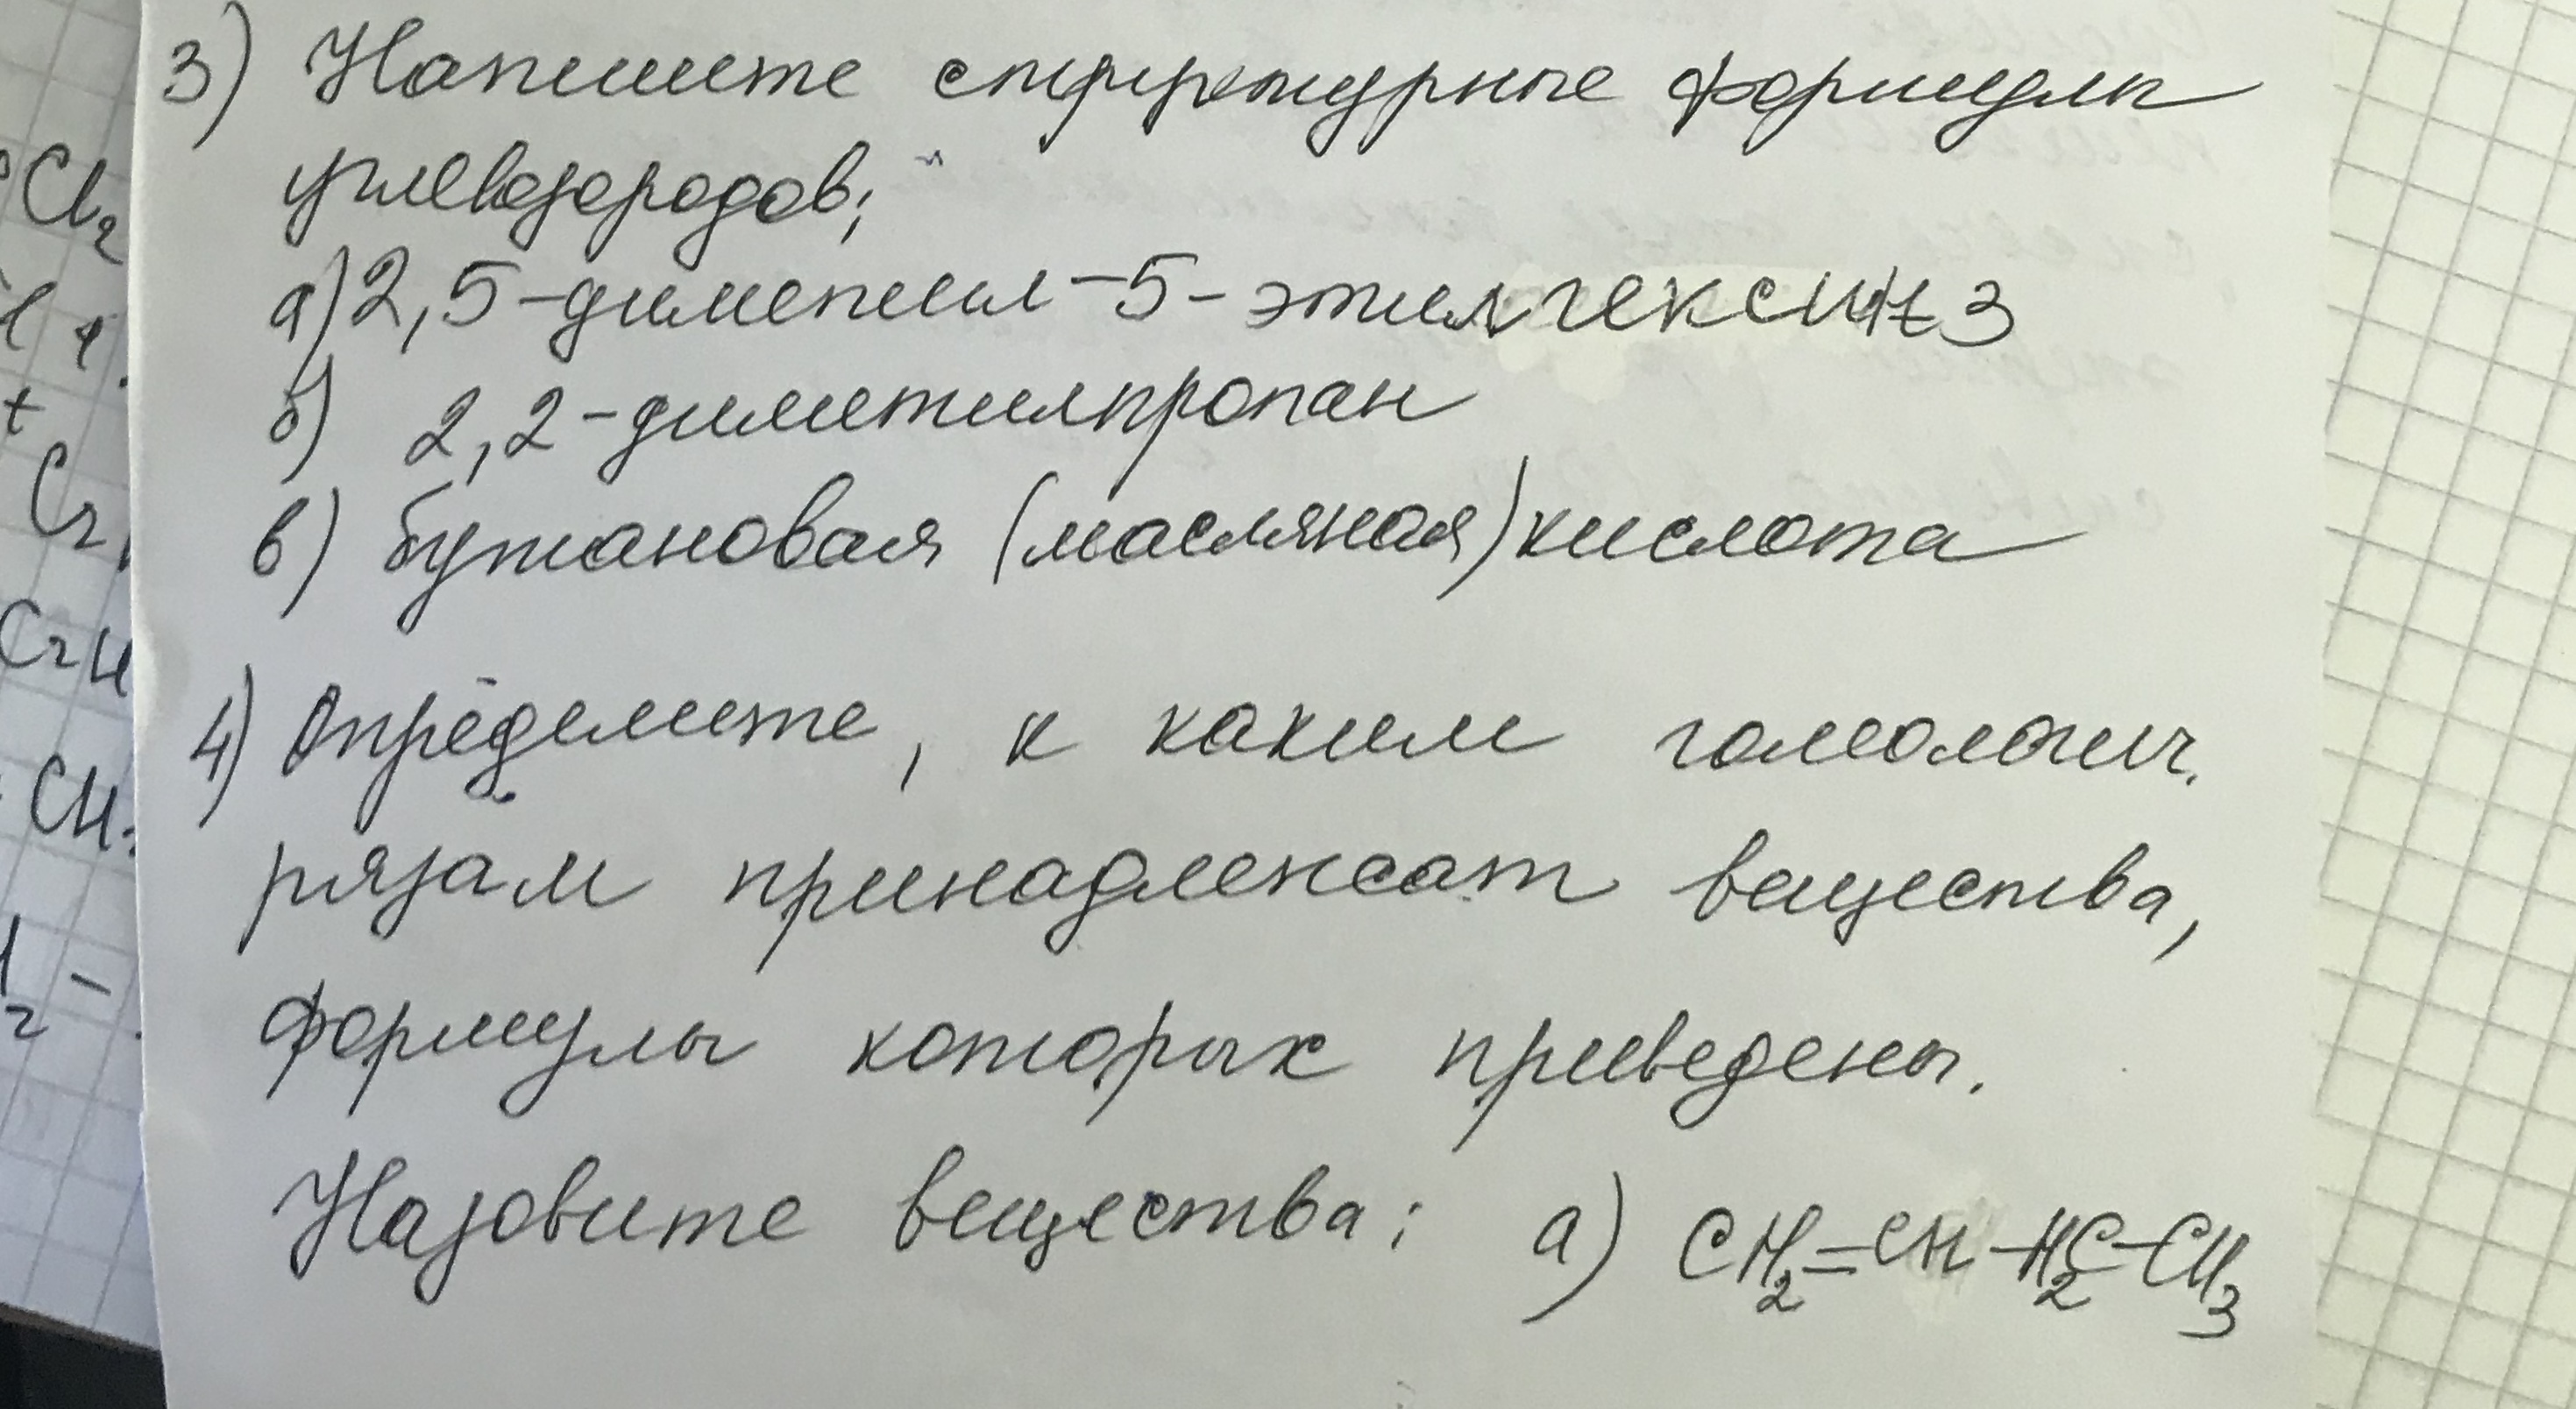 3) Напишите структурные формулы
углеводородов;
а) 2,5-диметил-5-этилгексин 3
б) 2,2-диметилпропан
в) бутановая (масляная) кислота
4) Определите, к каким гомологич.
рядам принадлежат вещества,
формулы которых приведены.
Назовите вещества: а) CH₂=CH-H₂C-CH₃
Cl₂
t
CH